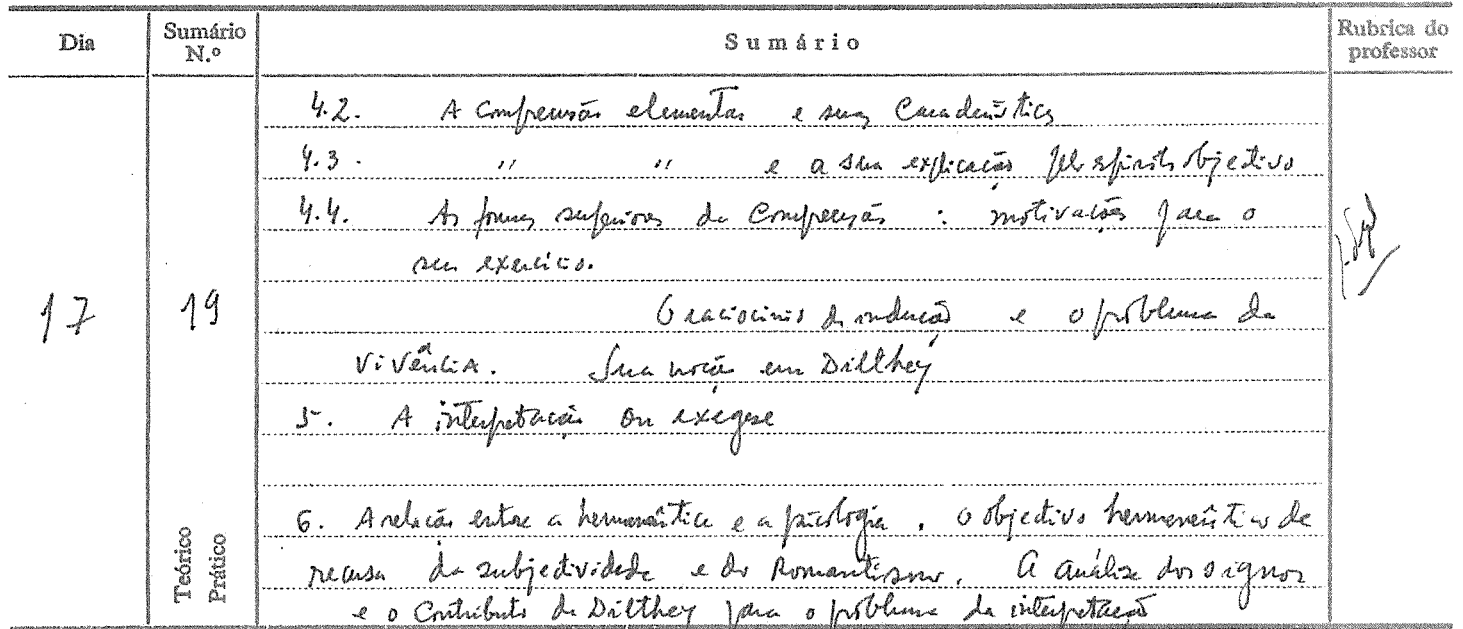 Dia Sumário N.º Sumário Rubrica do professor
4.2. A Compreensão elementar e suas Características
4.3. " " e a sua explicação pelo espírito objectivo
4.4. As formas superiores da Compreensão : motivações para o
seu exercício.
17 19 O raciocínio de indução e o problema da
Vivência. Sua noção em Dilthey
5. A interpretação ou exegese
6. A relação entre a hermenêutica e a psicologia. O objectivo hermenêutico de
recusa da subjectividade e do Romantismo. A análise dos signos
e o Contributo de Dilthey para o problema da interpretação
Teórico
Prático